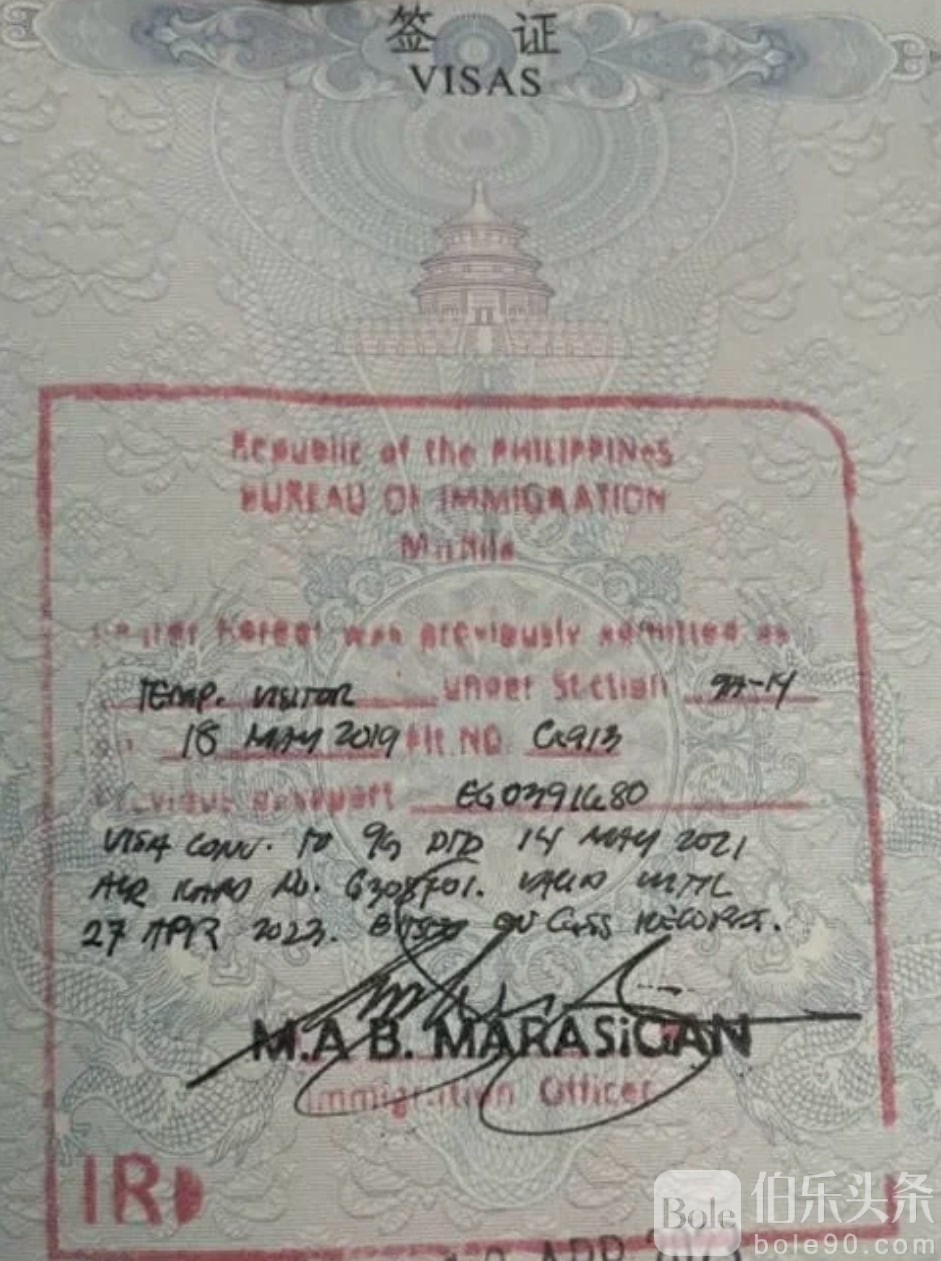 签 证
VISAS
Republic of the PHILIPPINES
BUREAU OF IMMIGRATION
Manila
Hereof was previously admitted as
TEMP. VISITOR under Section 9A-14
18 MAY 2019 Flt. NO
Previous passport
VISA CONV. TO 9G DTD 14 MAY 2021
ACR ICARD No. VALID UNTIL
27 APR 2023. RECORDS.
M.A B. MARASiGAN
Immigration Officer
IRD
APR
Bole 伯乐头条
bole90.com